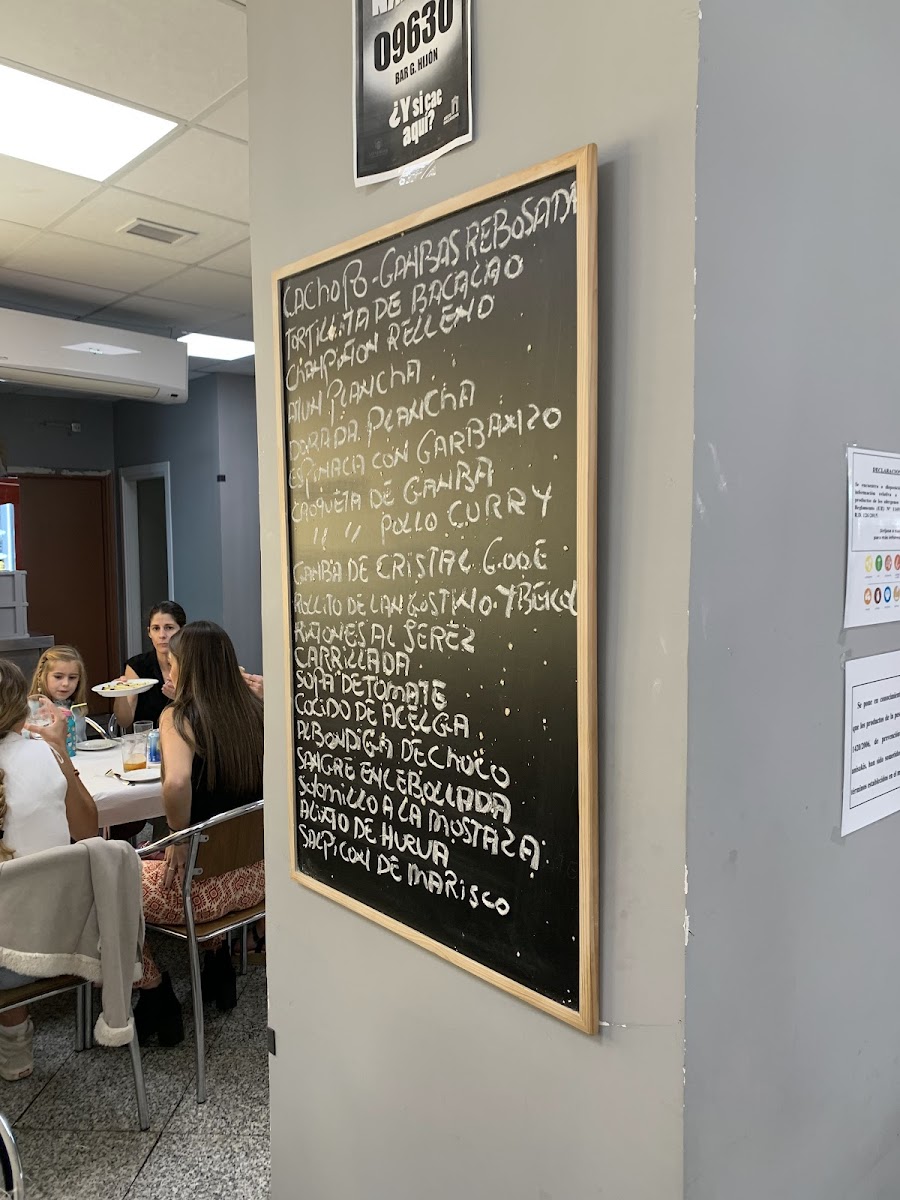 09630
BAR G. HIJÓN
¿Y si cae
aquí?
CACHOPO - GAMBAS REBOSADA
TORTILLITA DE BACALAO
CHAMPIÑON RELLENO
ATUN PLANCHA
DORADA PLANCHA
ESPINACA CON GARBANZO
CROQUETA DE GAMBA
" " POLLO CURRY
GAMBA DE CRISTAL G.00E
ROLLITO DE LANGOSTINO
RIÑONES AL JEREZ
CARRILLADA
SOPA DE TOMATE
COCIDO DE ACELGA
ALBONDIGA DE CHOCO
SANGRE ENCEBOLLADA
SOLOMILLO A LA MOSTAZA
ALIÑO DE HUEVA
SALPICON DE MARISCO
DECLARACION
Se encuentra a
información relativa a
productos de los alérgenos
Reglamento (UE) Nº
R.D. 126/2015.
Se pone en conocimiento
que los productos de la pesca
1420/2006, de prevención
anisakis, han sido sometidos
términos establecidos en el